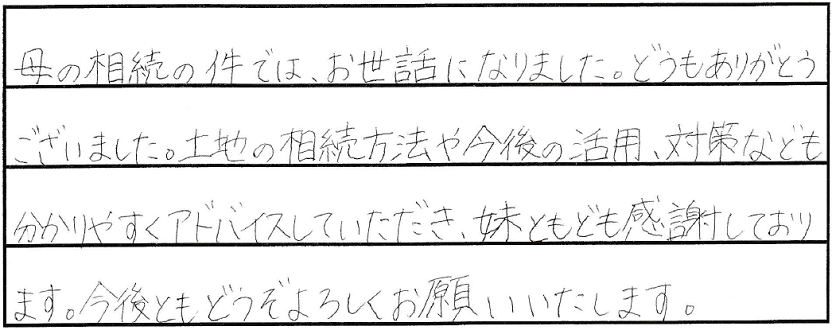 母の相続の件では、お世話になりました。どうもありがとう
ございました。土地の相続方法や今後の活用、対策なども
分かりやすくアドバイスしていただき、妹ともども感謝しており
ます。今後ともどうぞよろしくお願いいたします。